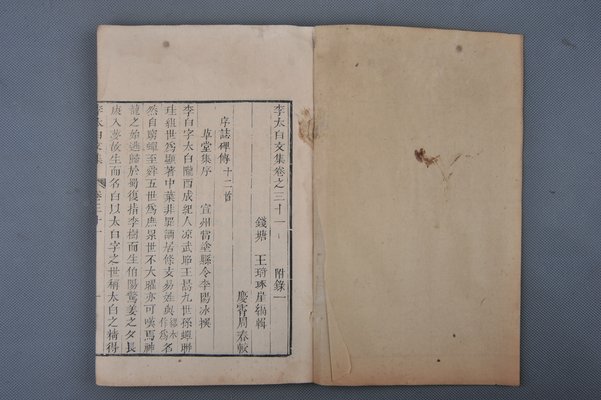 李太白文集卷之三十一 附錄一
錢塘 王琦琢崖編輯
慶霄周春較
序誌碑傳十二首
草堂集序 宣州當塗縣令李陽冰撰
李白字太白隴西成紀人涼武昭王暠九世孫蟬聯
珪組世爲顯著中葉非罪謫居條支易姓與繆本作爲名
然自窮蟬至舜五世爲庶累世不大曜亦可嘆焉神
龍之始逃歸於蜀復指李樹而生伯陽驚姜之夕長
庚入夢故生而名白以太白字之世稱太白之精得
李太白文集